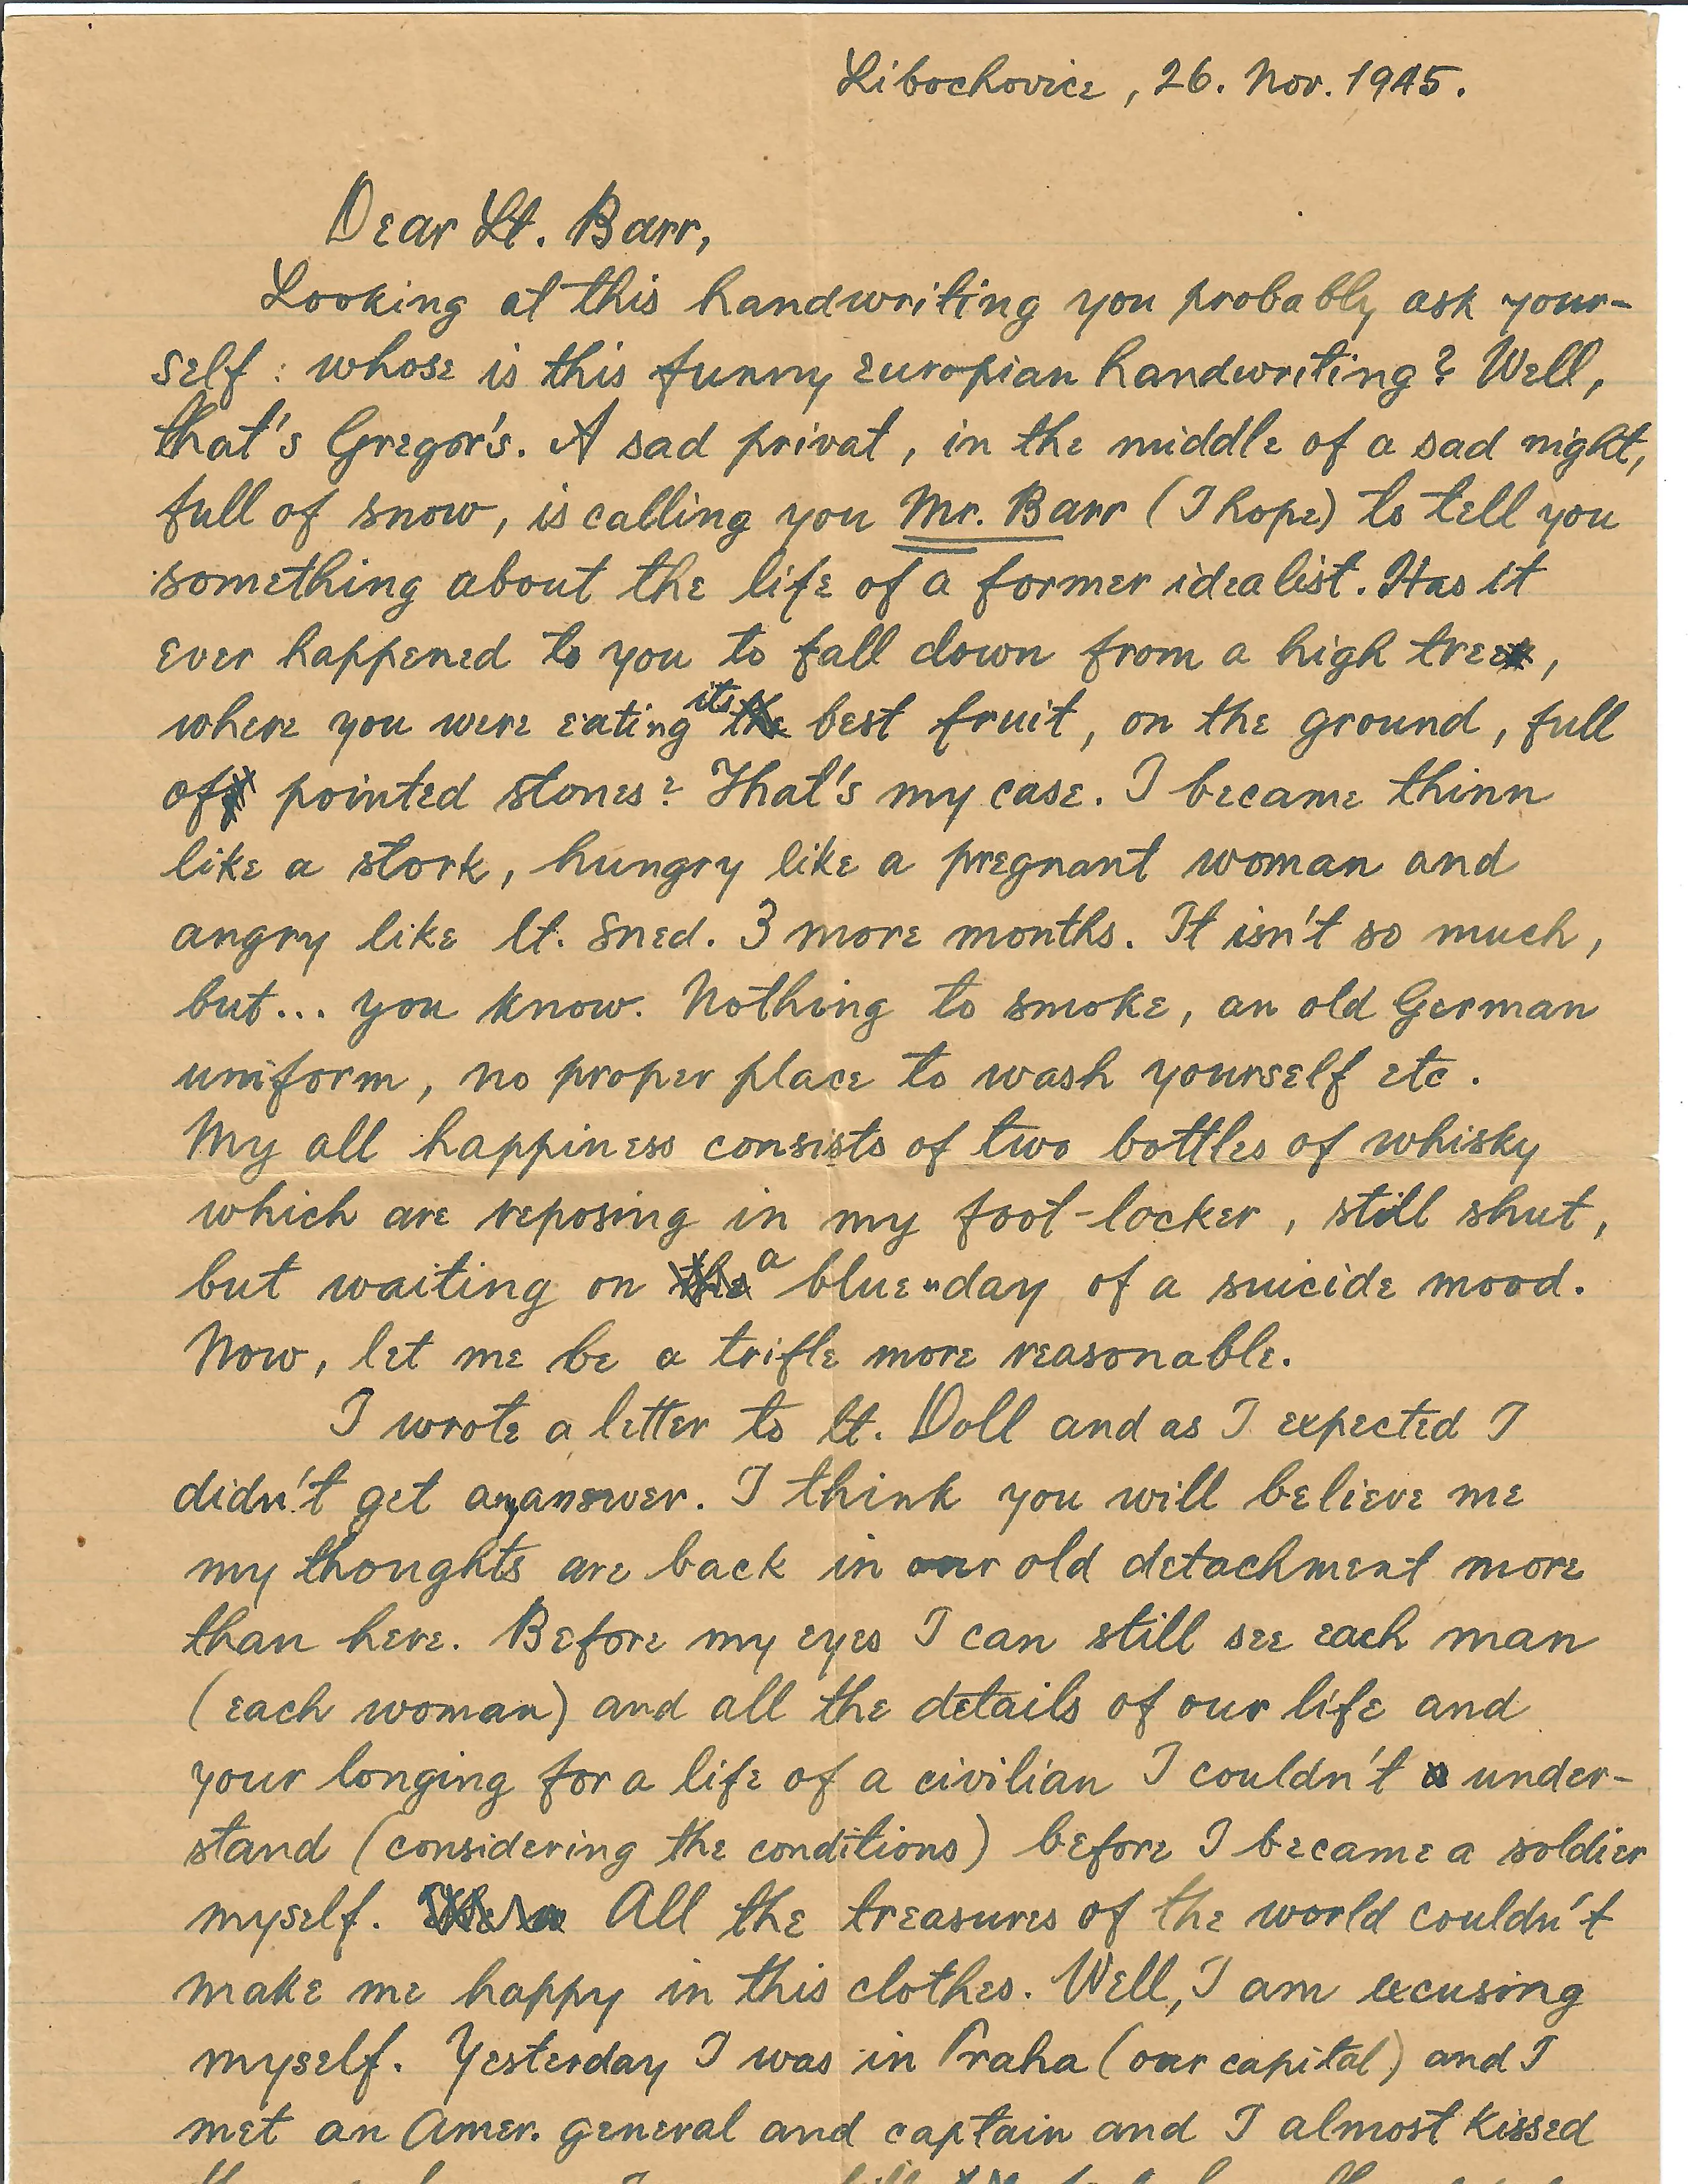 Libochovice, 26. Nov. 1945.
Dear Lt. Barr,
Looking at this handwriting you probably ask your-
self: whose is this funny europian handwriting? Well,
that's Gregor's. A sad privat, in the middle of a sad night,
full of snow, is calling you Mr. Barr (I hope) to tell you
something about the life of a former idealist. Has it
ever happened to you to fall down from a high tree,
where you were eating its best fruit, on the ground, full
of pointed stones? That's my case. I became thinn
like a stork, hungry like a pregnant woman and
angry like lt. Sned. 3 more months. It isn't so much,
but... you know. Nothing to smoke, an old German
uniform, no proper place to wash yourself etc.
My all happiness consists of two bottles of whisky
which are reposing in my foot-locker, still shut,
but waiting on a blue-day of a suicide mood.
Now, let me be a trifle more reasonable.
I wrote a letter to lt. Doll and as I expected I
didn't get any answer. I think you will believe me
my thoughts are back in our old detachment more
than here. Before my eyes I can still see each man
(each woman) and all the details of our life and
your longing for a life of a civilian I couldn't under-
stand (considering the conditions) before I became a soldier
myself. All the treasures of the world couldn't
make me happy in this clothes. Well, I am excusing
myself. Yesterday I was in Praha (our capital) and I
met an Amer. general and captain and I almost kissed